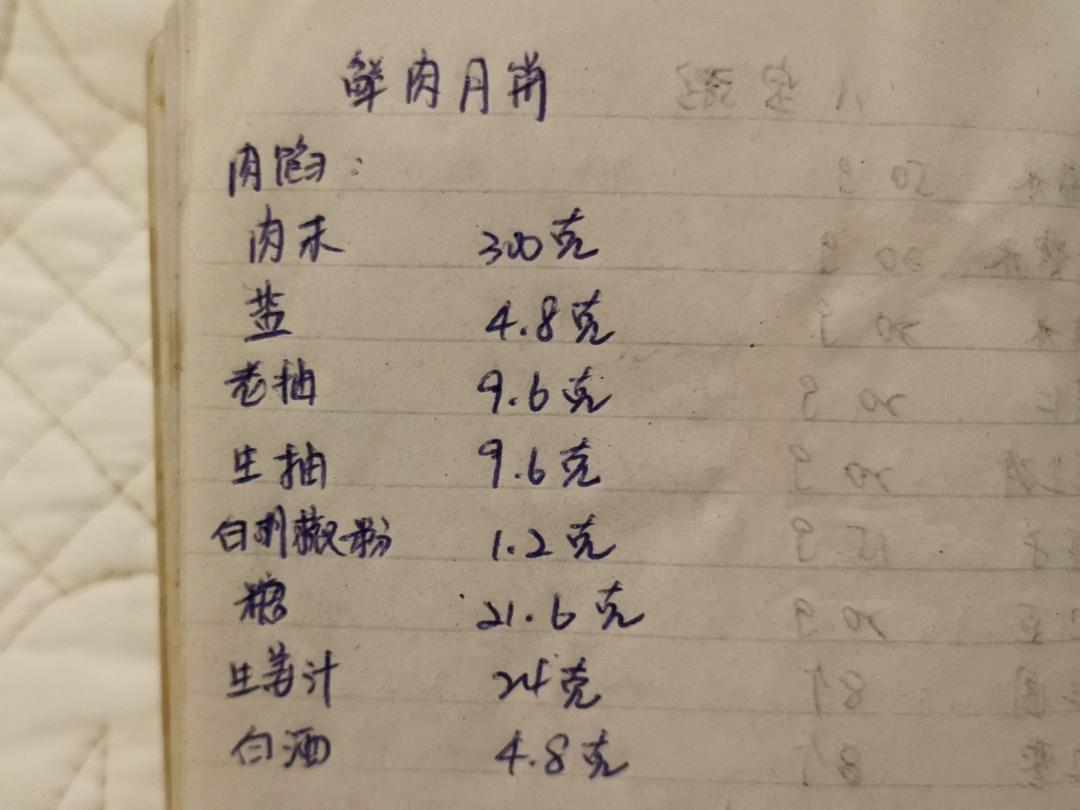 鲜肉月饼
肉馅:
肉末 300克
盐 4.8克
老抽 9.6克
生抽 9.6克
白胡椒粉 1.2克
糖 21.6克
生姜汁 24克
白酒 4.8克